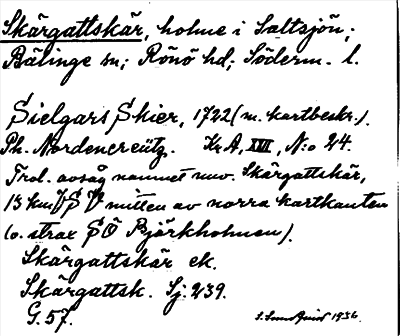 Skärgattskär, holme i Saltsjön;
Bälinge sn; Rönö hd; Söderm. l.
Sielgars Skier, 1722 (m. kartbeskr.).
Ph. Nordencreutz. Kr A, XVII, N:o 24.
Trol. avsåg namnet nuv. Skärgattskär,
13 km V S V mitten av norra kartkanten
(o. strax SÖ Björkholmen).
Skärgattskär ek.
Skärgattsk. Sj. 239.
G. 57.
1936.